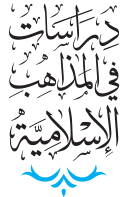 دِرَاسَات
في المَذاهِب
الإِسْلَاميَّة